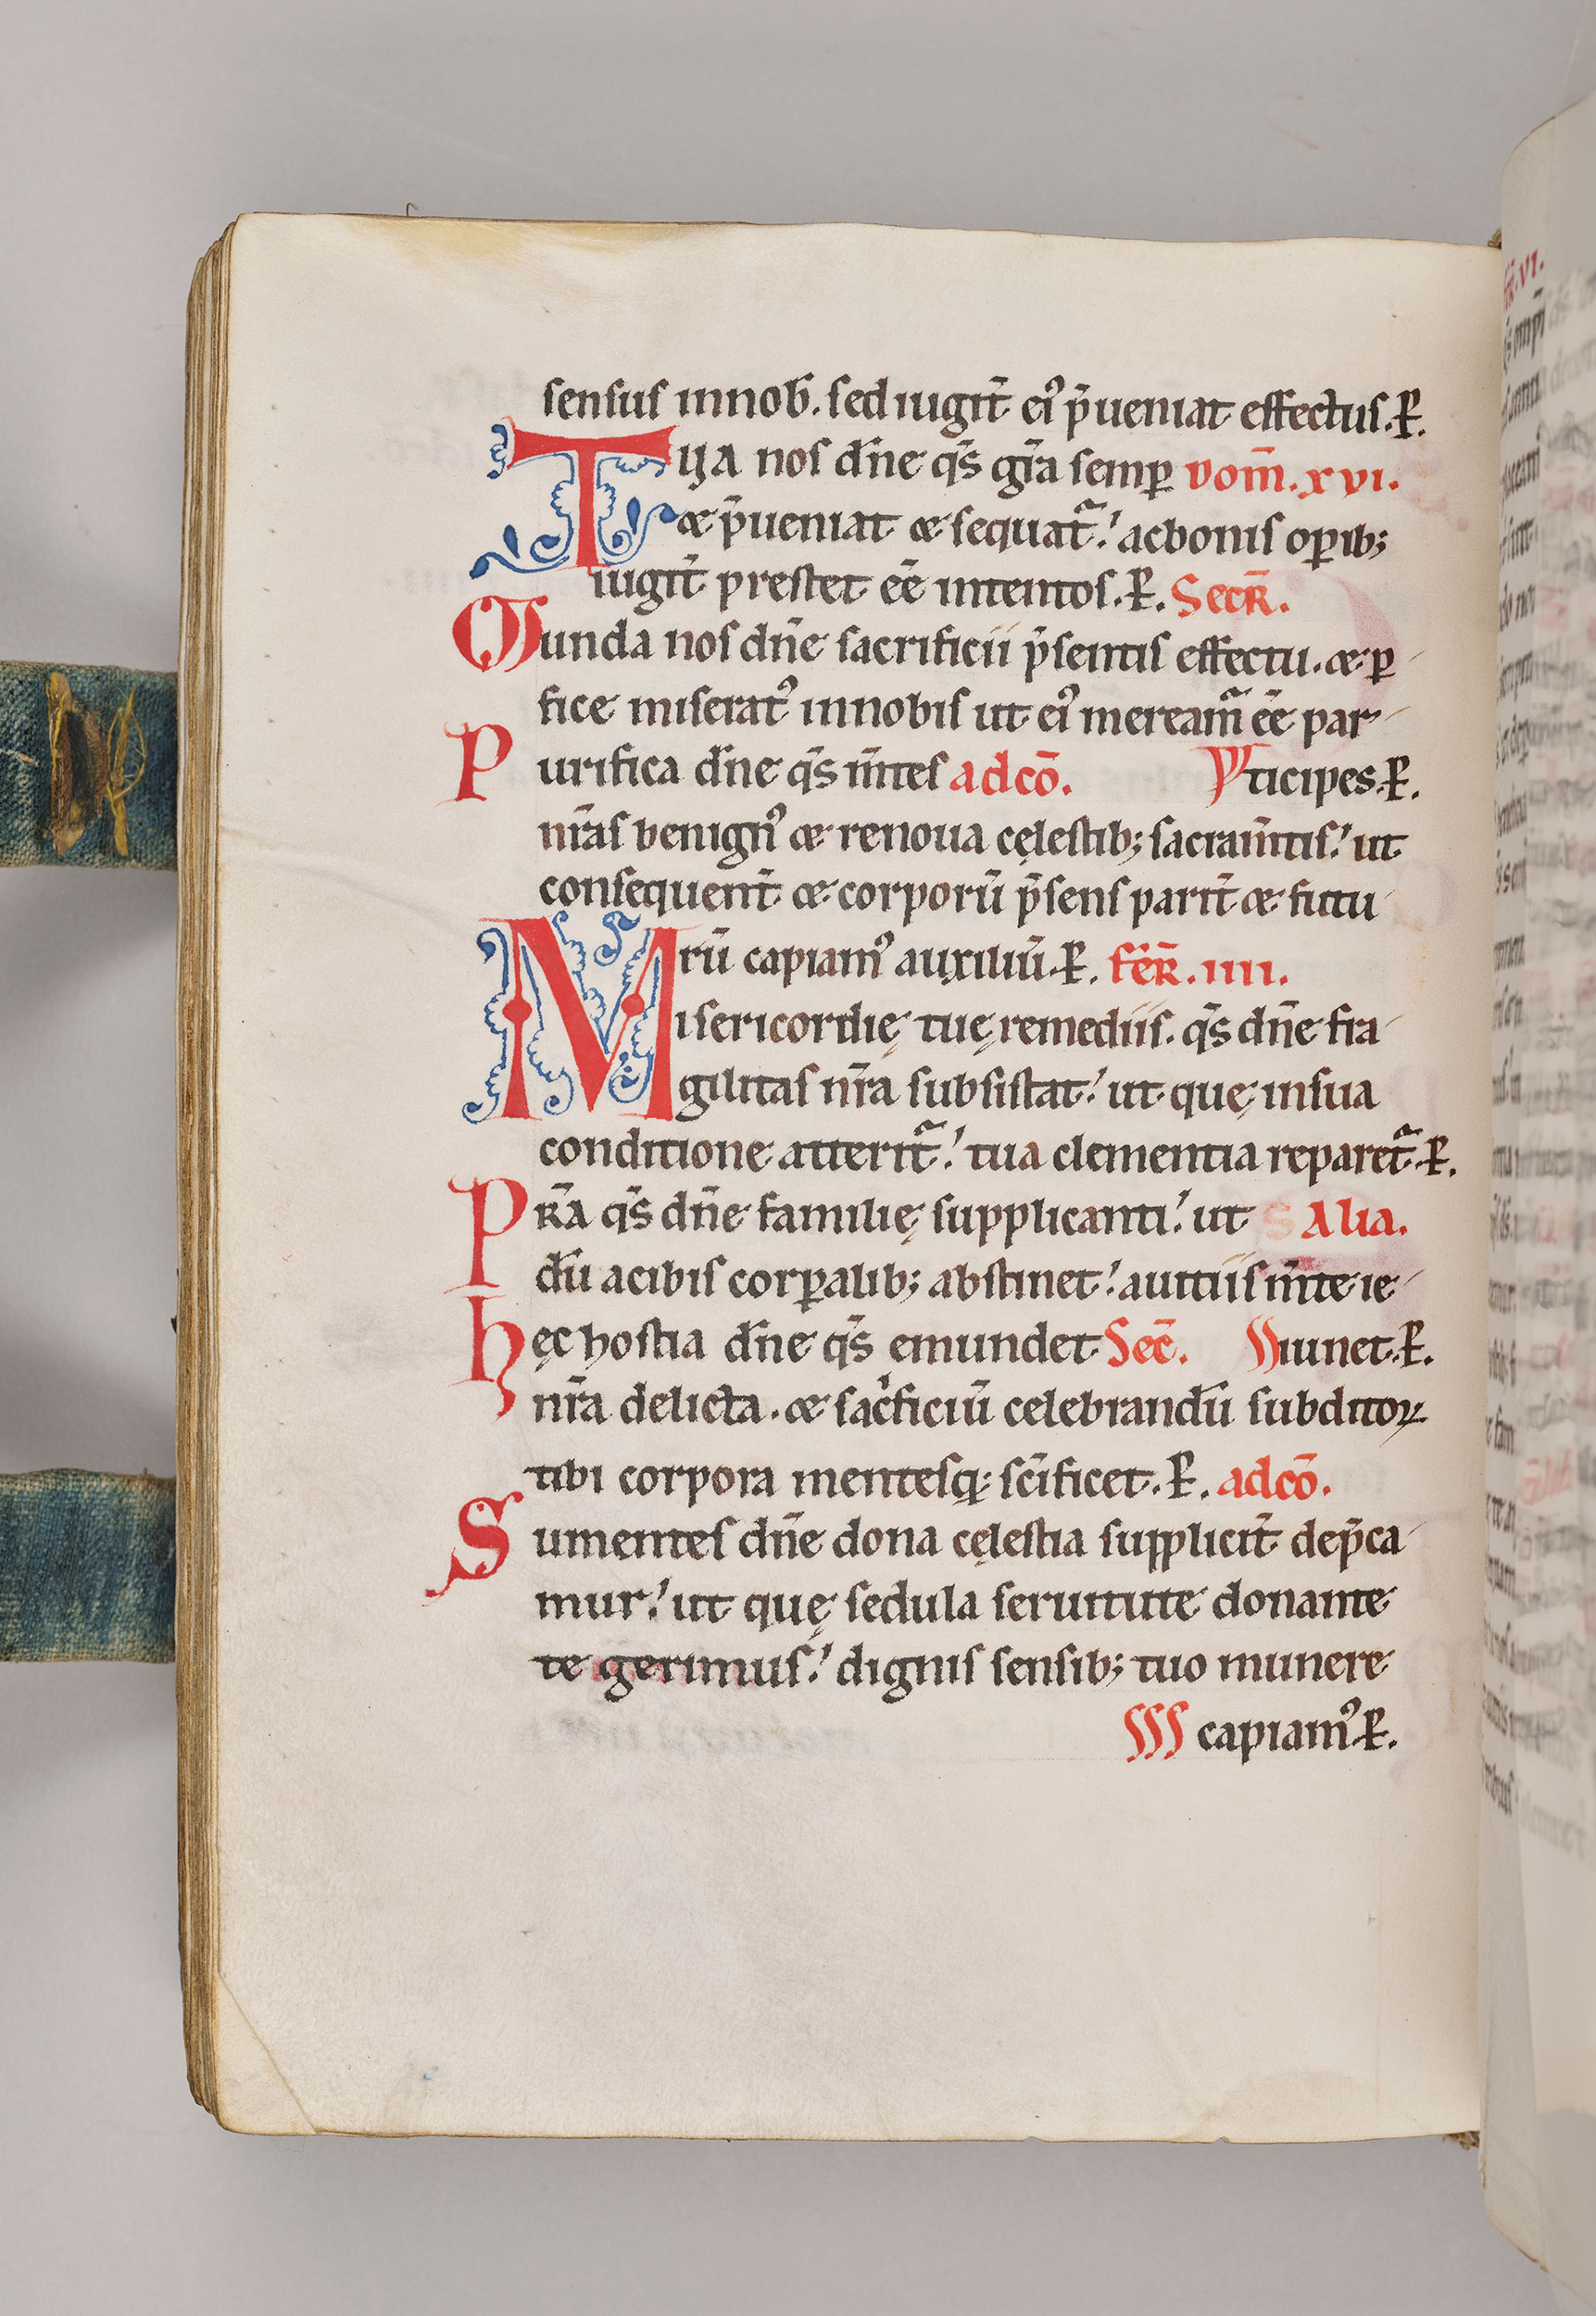 sensus innob̄. sed iugit̄ eiꝰ p̄ueniat effectus. ꝑ.
TUA nos dn̄e qs̄ gr̄a semꝑ Dom̄. xvi.
& p̄ueniat & sequat᷑. ac bonis oꝑib;
iugit̄ prestet ee̅ intentos. ꝑ. Secr̄.
Munda nos dn̄e sacrificii p̄sentis effectu. & ꝑ
fice miseratꝰ innobis ut eiꝰ meream᷑ ee̅ par
Purifica dn̄e qs̄ m̄tes adcō. ticipes. ꝑ.
nr̄as benignꝰ & renoua cęlestib; sacram̄tis. ut
consequent̄ & corporū p̄sens parit̄ & futu
rū capiamꝰ auxiliū. ꝑ. fer̄. iiii.
Misericordię tuę remediis. qs̄ dn̄e fra
gilitas nr̄a subsistat. ut quę insua
conditione atterit᷑. tua clementia reparet᷑. ꝑ.
PR̄A qs̄ dn̄e familię supplicanti. ut Alia.
dū acibis corꝑalib; abstinet. auitiis m̄te ie
hęc hostia dn̄e qs̄ emundet Sec̄. iunet. ꝑ.
nr̄a delicta. & sac̍ficiū celebrandū subditoꝝ
tibi corpora mentesq; sc̄ificet. ꝑ. adcō.
Sumentes dn̄e dona cęlestia supplicit̄ dep̄ca
mur. ut quę sedula seruitute donante
te gerimus. dignis sensib; tuo munere
capiamꝰ. ꝑ.